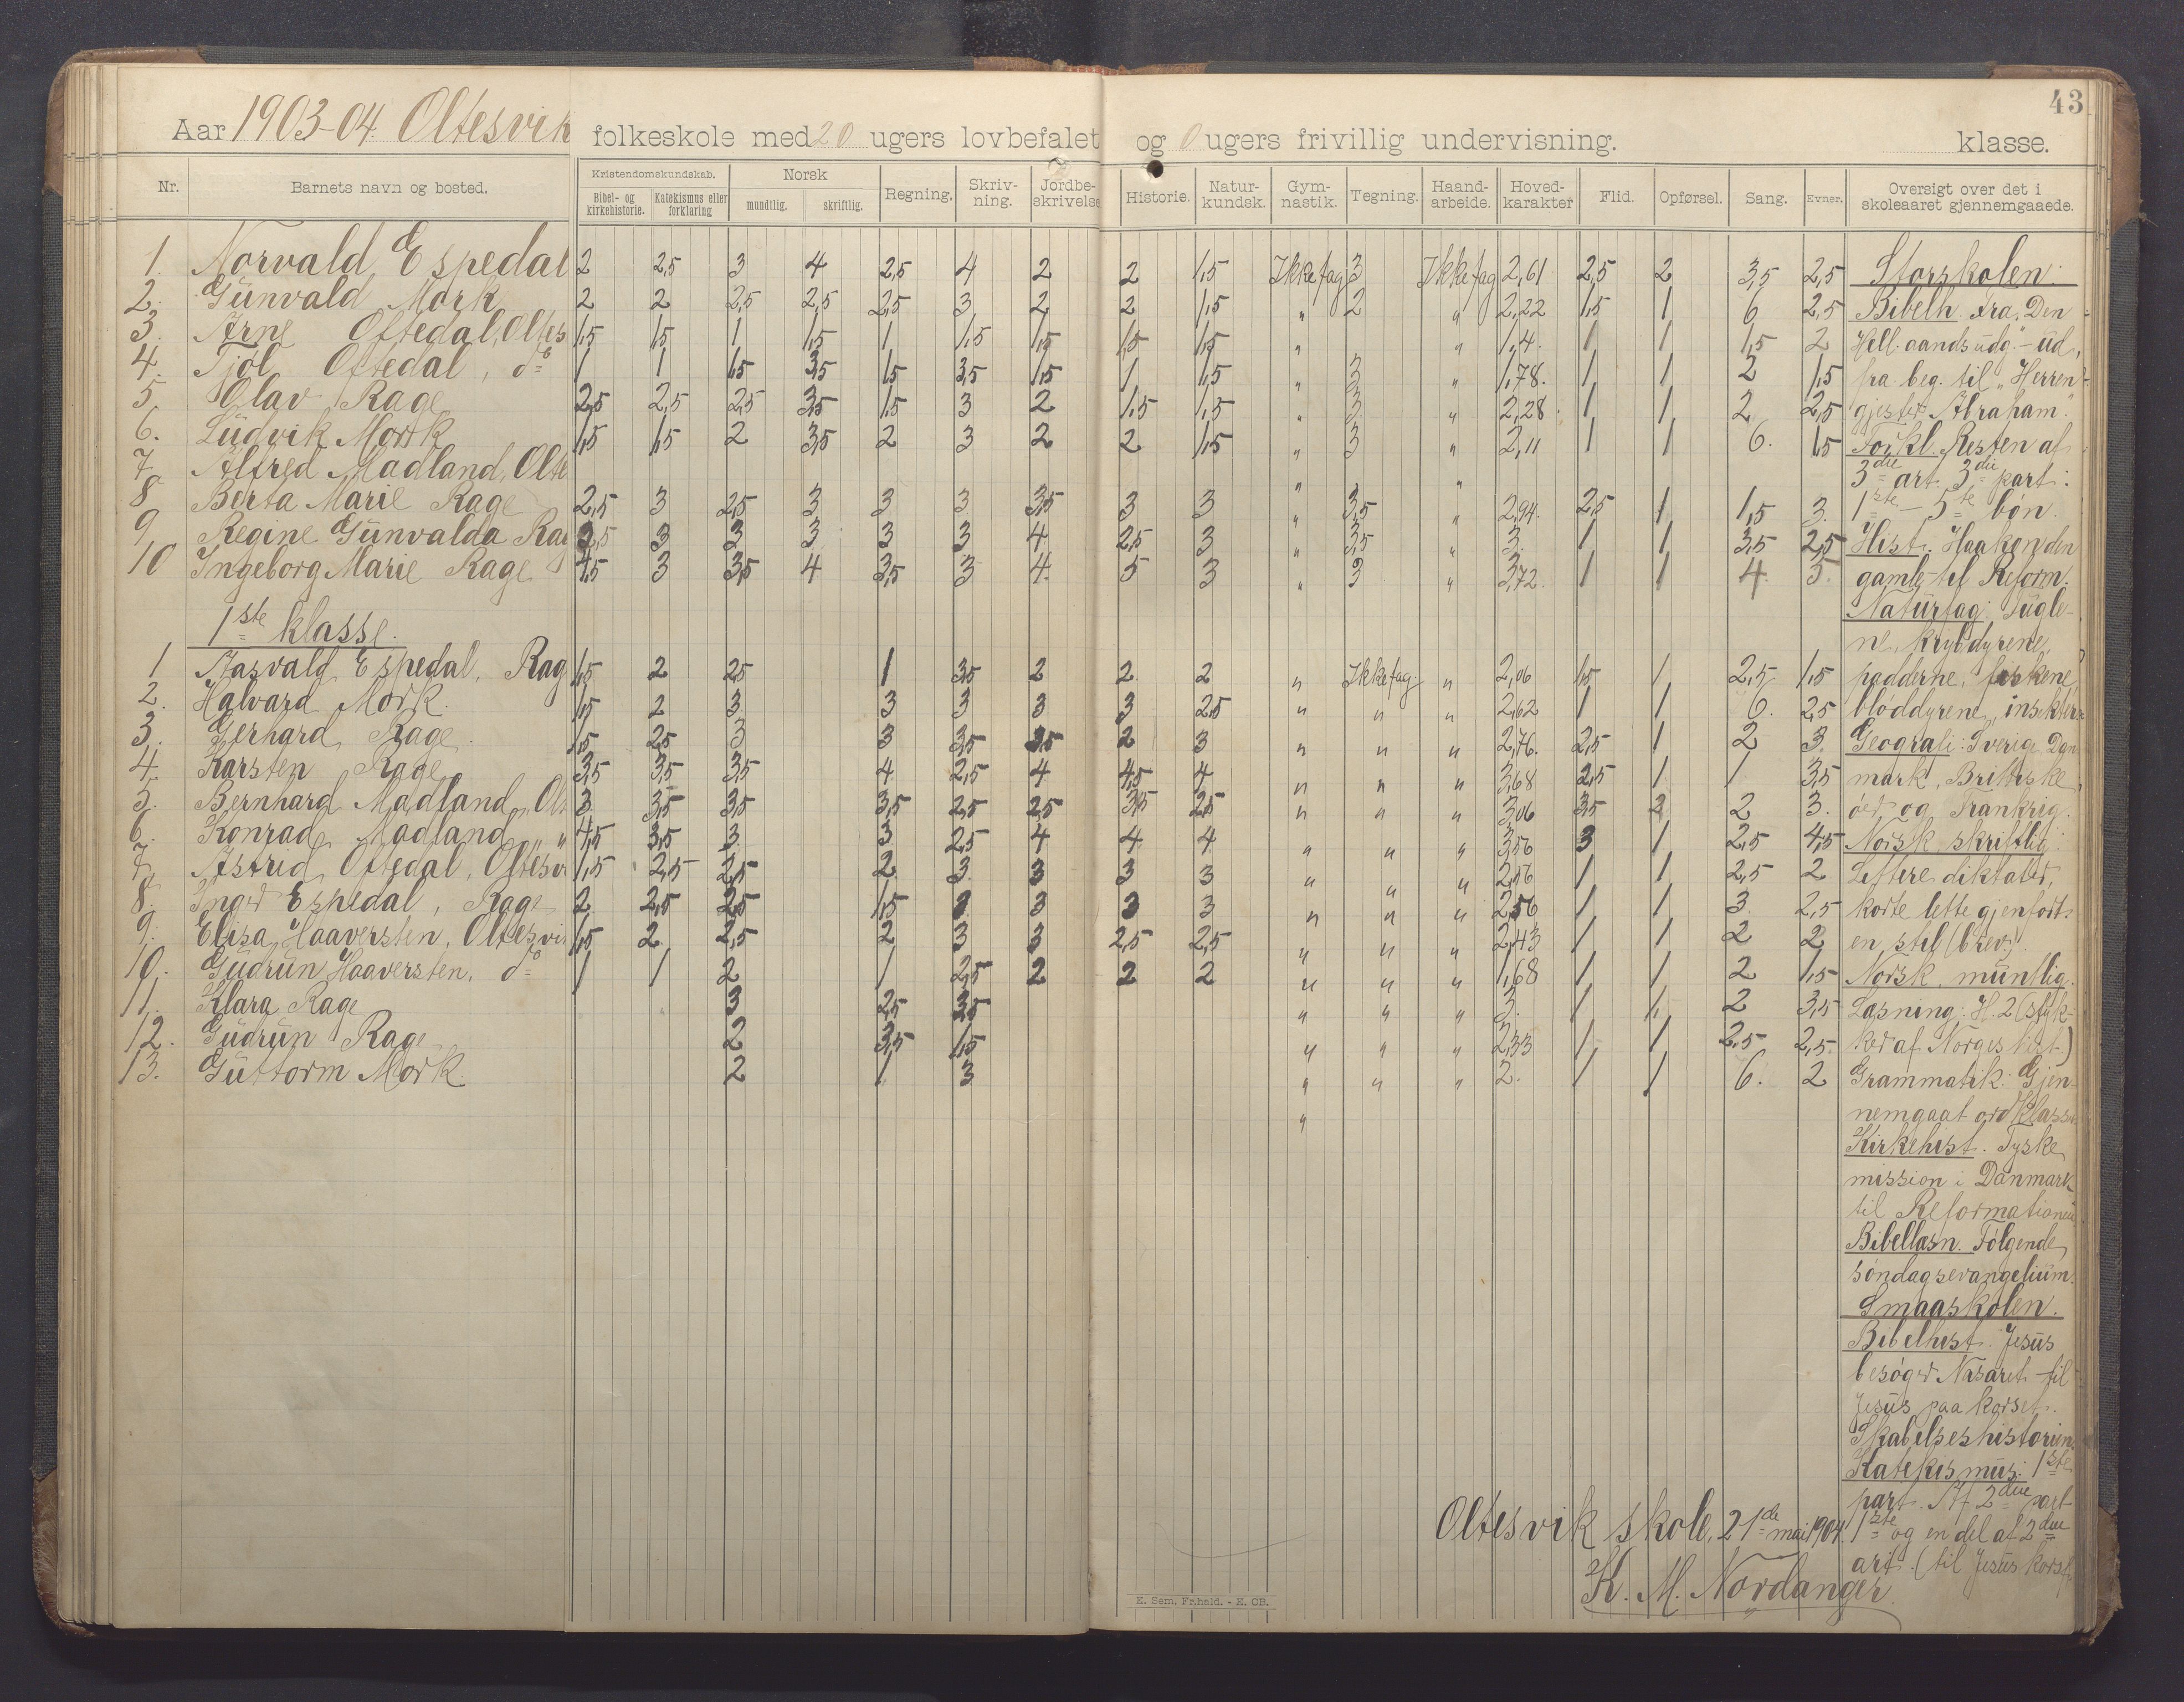 43
Aar 1903-04. Oltesvik folkeskole med 20 ugers lovbefalet og 0 ugers frivillig undervisning. klasse.
Nr. Barnets navn og bosted. Kristendomskundskab. Bibel- og kirkehistorie. Katekismus eller forklaring Norsk mundtlig. skriftlig. Regning. Skriv-ning. Jordbe-skrivelse Historie. Natur-kundsk. Gym-nastik. Tegning. Haand-arbeide. Hoved-karakter Flid. Opførsel. Sang. Evner. Oversigt over det i skoleaaret gjennemgaaede.
1. Norvald Espedal 2 2,5 3 4 2,5 4 2 2 1,5 Ikke fag 3 Ikke fag 2,61 2,5 2 3,5 2,5
2. Gunvald Mork 2 2 2,5 2,5 2,5 3 2 2 1,5 " 2 " 2,22 1,5 1 6 2,5
3. Arne Oftedal, Oltes 1,5 1,5 1 1,5 1 1,5 1,5 1,5 1,5 " " 1,4. 1 1 1,5 2
4. Tjöl Oftedal, do 1 1 1,5 3,5 1,5 3,5 1,5 1 1,5 " 3 " 1,78. 1 1 2 1,5
5 Olav Rage 2,5 2,5 2,5 3,5 1,5 3 2 1,5 1,5 " 3 " 2,28. 1 1 2 2,5
6. Ludvik Mork 1,5 1,5 2 3,5 2 3 2 2 1,5 " 3 " 2,11 1 1 6. 1,5
7 Alfred Madland, Olte " "
8 Berta Marie Rage 2,5 3 2,5 3 3 3 3,5 3 3 " 3,5 " 2,94. 2,5 1 1,5 3.
9 Regine Gunvalda Rag 2,5 3 3 3 3 3 4 2,5 3 " 3,5 " 3. 1 1 3,5 2,5
10 Ingeborg Marie Rage 4,5 3 3,5 4 3,5 3 4. 5 3 " 3 " 3,72. 1 1 4. 5.
1ste klasse.
1 Aasvald Espedal, Rag 1,5 2 2,5 1 3,5 2 2 2 " Ikke fag. " 2,06 1,5 1 2,5 1,5
2. Halvard Mork. 1,5 2 3. 3 3 3 3 2,5 " " " 2,62 1 1 6. 2,5
3. Gerhard Rage. 1,5 2,5 3 3 3,5 3,5 2 3 " " " 2,76. 2,5 1 2 3.
4. Karsten Rage 3,5 3,5 3,5 4 2,5 4 4,5 4 " " " 3,68 2,5 1 1 3,5
5. Bernhard Madland, Olt 3 3,5 3,5 3,5 2,5 2,5 3,5 2,5 " " " 3,06 3,5 2 2 3.
6. Konrad Madland " " 4,5 3,5 3. 3 2,5 4 4 4 " " " 3,56 3 1 2,5 4,5
7. Astrid Oftedal, Oltesv 1,5 2,5 2,5 2 3 3 3 3 " " " 2,56 1 1 2,5 2
8. Inger Espedal, Rage 2 2,5 2,5 1,5 3 3 3 3 " " " 2,56 1 1 3 2,5
9. Elisa Haaversten, Oltesvi 1,5 2 2,5 2 3 3 2,5 2,5 " " " 2,43 1 1 2 2
10. Gudrun Haaversten, do 1 1 2 1 2,5 2 2 2 " " " 1,68 1 1 2 1,5
11. Klara Rage 3 2,5 3,5 " " " 3. 1 1 2 3,5
12. Gudrun Rage 2 3,5 1,5 " " " 2,33 1 1 2,5 2,5
13. Guttorm Mork. 2 1 3 " " " 2. 1 1 6. 2
"
Storskolen.
Bibelh. fra „Den
Hell. aands udg." – ud,
fra beg. til „Herren
gjester Abraham."
Forkl. Resten af
3die art. 3die part:
1ste – 5te bön.
Hist. Haakon den
gamle – til Reform.
Naturfag: Fugle-
ne, krybdyrene,
padderne, fiskene,
bløddyrene, insekterne
Geografi: Sverige, Dan
mark, Britiske
øer og Frankrig.
Norsk skriftlig:
Lettere diktater,
korte lette gjenfort.
en stil (brev).
Norsk muntlig.
Læsning: H. 2 (styk-
ker af Norges hist.)
Grammatik: Gjen
nemgaat ordklasse
Kirkehist. Tyske
mission i Danmark
til Reformationen
Bibellæsn. Følgende
søndagsevangelium.
Smaaskolen.
Bibelhist. Jesus
besøger Nasaret – til
Jesus paa korset.
Skabelseshistorien.
Katekismus: 1ste
part. Af 2den part
1ste og en del af 2den
art. (til Jesus kors
Oltesvik skole, 21de mai 1904.
K. M. Nordanger
E. Sem, Fr.hald. - E. OB.